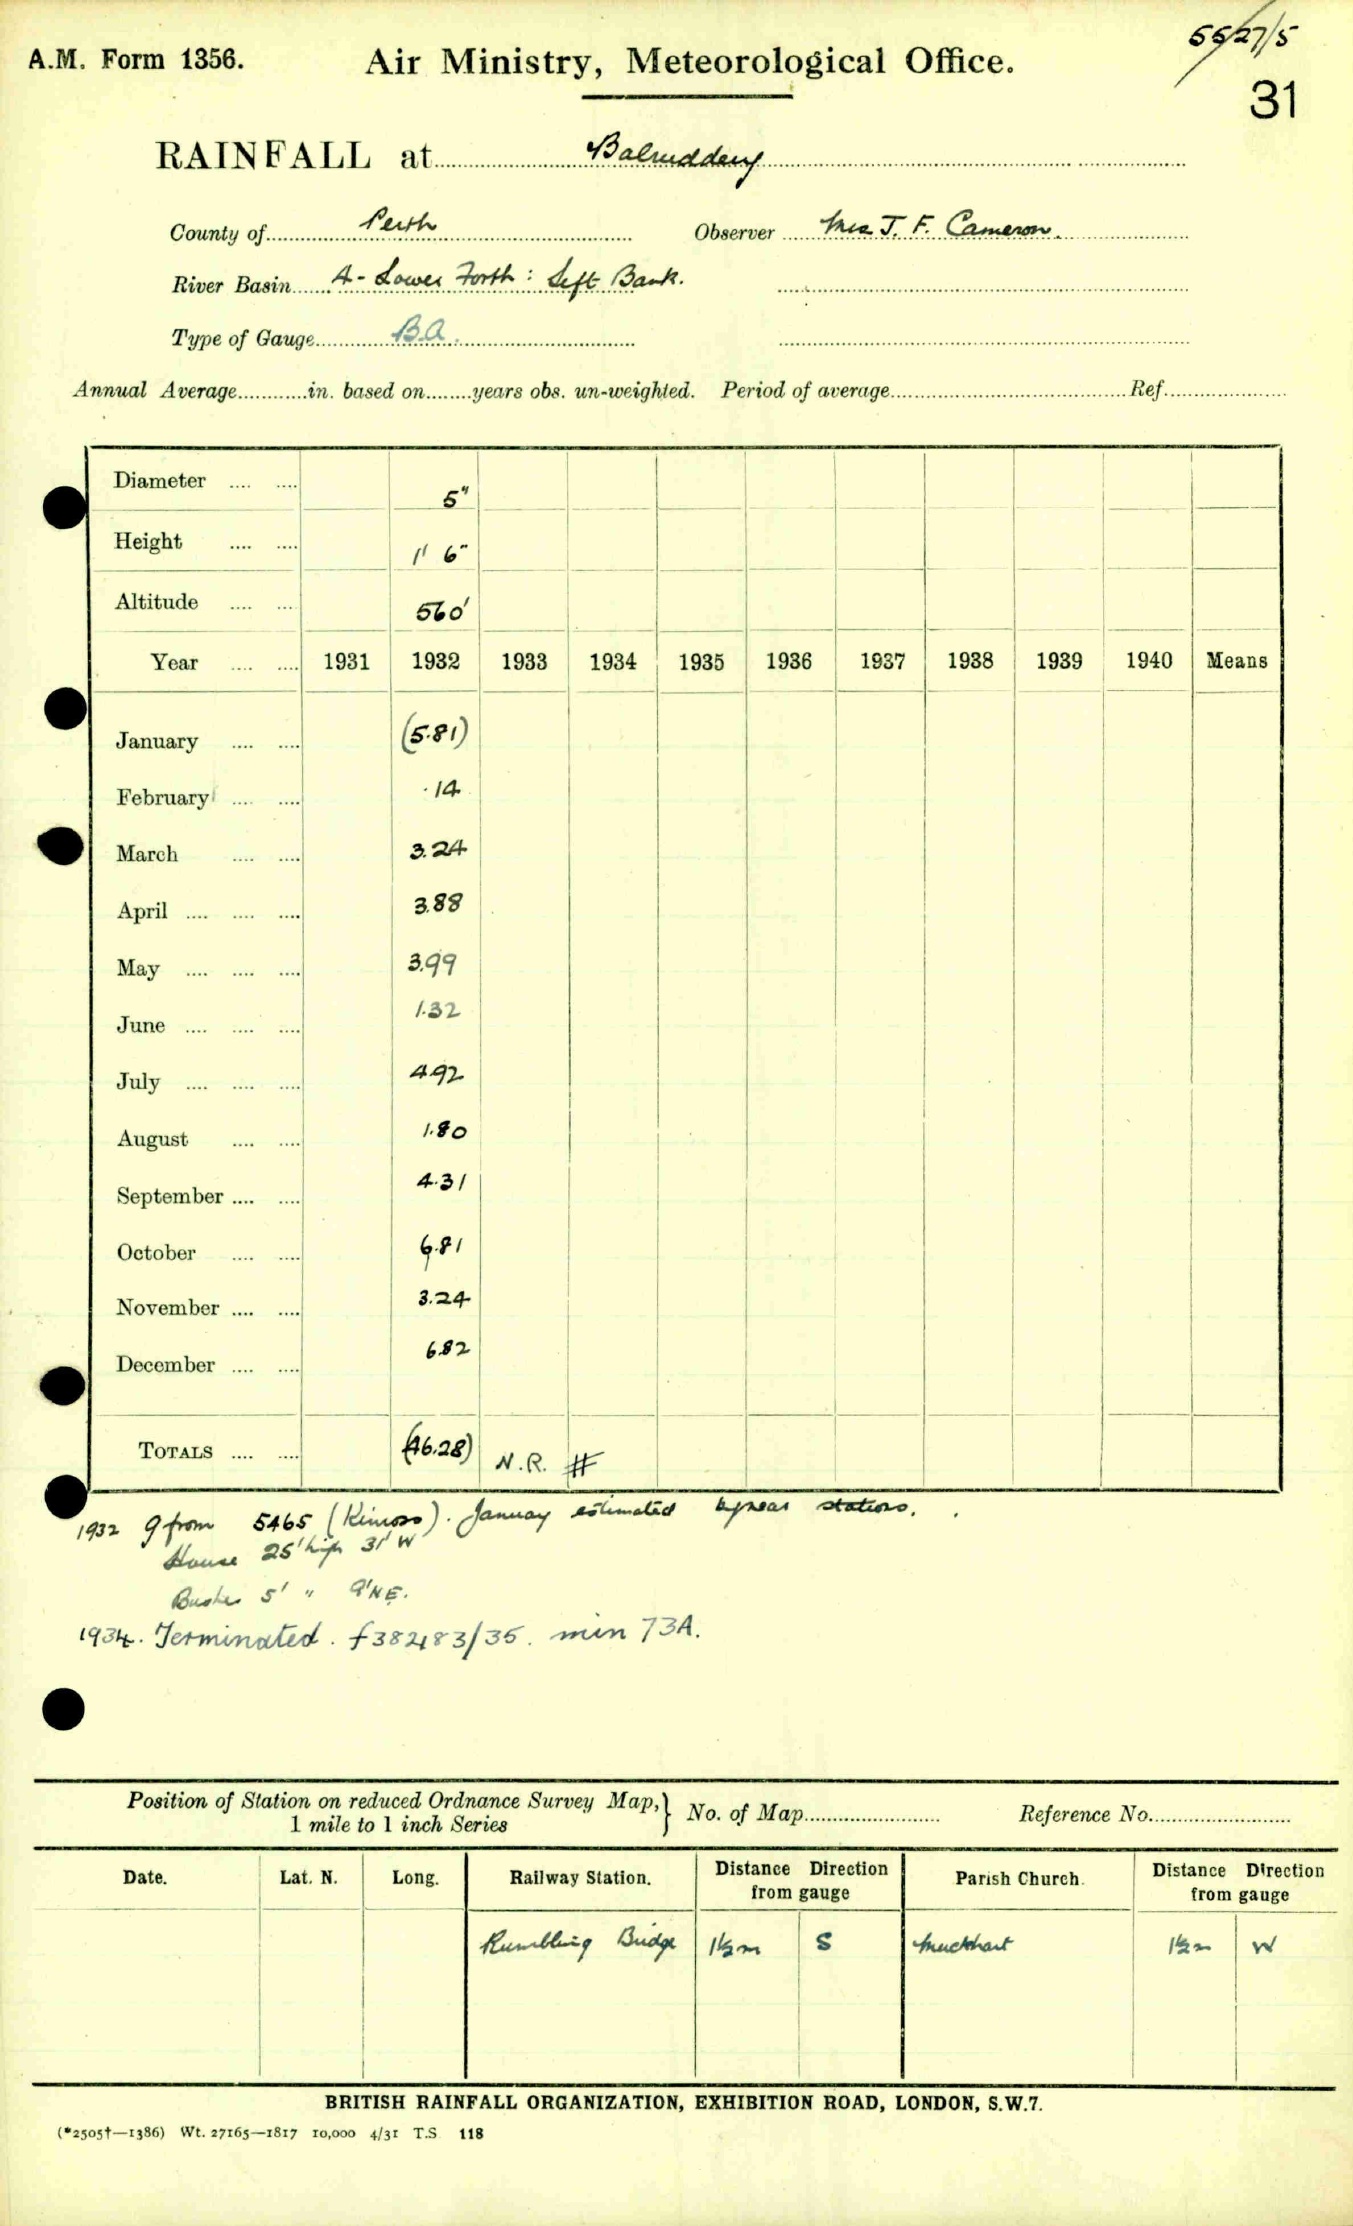 A.M. Form 1356.
Air Ministry, Meteorological Office.
5527/5
31
RAINFALL at Balruddery
County of Perth Observer Mrs J. F. Cameron.
River Basin A - Lower Forth: Left Bank.
Type of Gauge B.A.
Annual Average in. based on years obs. un-weighted. Period of average Ref.
Diameter 5"
Height 1' 6"
Altitude 560'
Year 1931 1932 1933 1934 1935 1936 1937 1938 1939 1940 Means
January (5.81)
February .14
March 3.24
April 3.88
May 3.99
June 1.32
July 4.92
August 1.80
September 4.31
October 6.81
November 3.24
December 6.82
TOTALS (46.28) N.R. #
1932 g from 5465 (Kinross). January estimated by near stations.
House 25' high 31' W
Bushes 5' " 9' NE.
1934. Terminated. f382483/35. min 73A.
Position of Station on reduced Ordnance Survey Map, } No. of Map Reference No.
1 mile to 1 inch Series
Date. Lat. N. Long. Railway Station. Distance Direction from gauge Parish Church. Distance Direction from gauge
Rumbling Bridge 1½m S Muckhart 1½m W
BRITISH RAINFALL ORGANIZATION, EXHIBITION ROAD, LONDON, S.W.7.
(*2505†—1386) Wt. 27165—1817 10,000 4/31 T.S 118